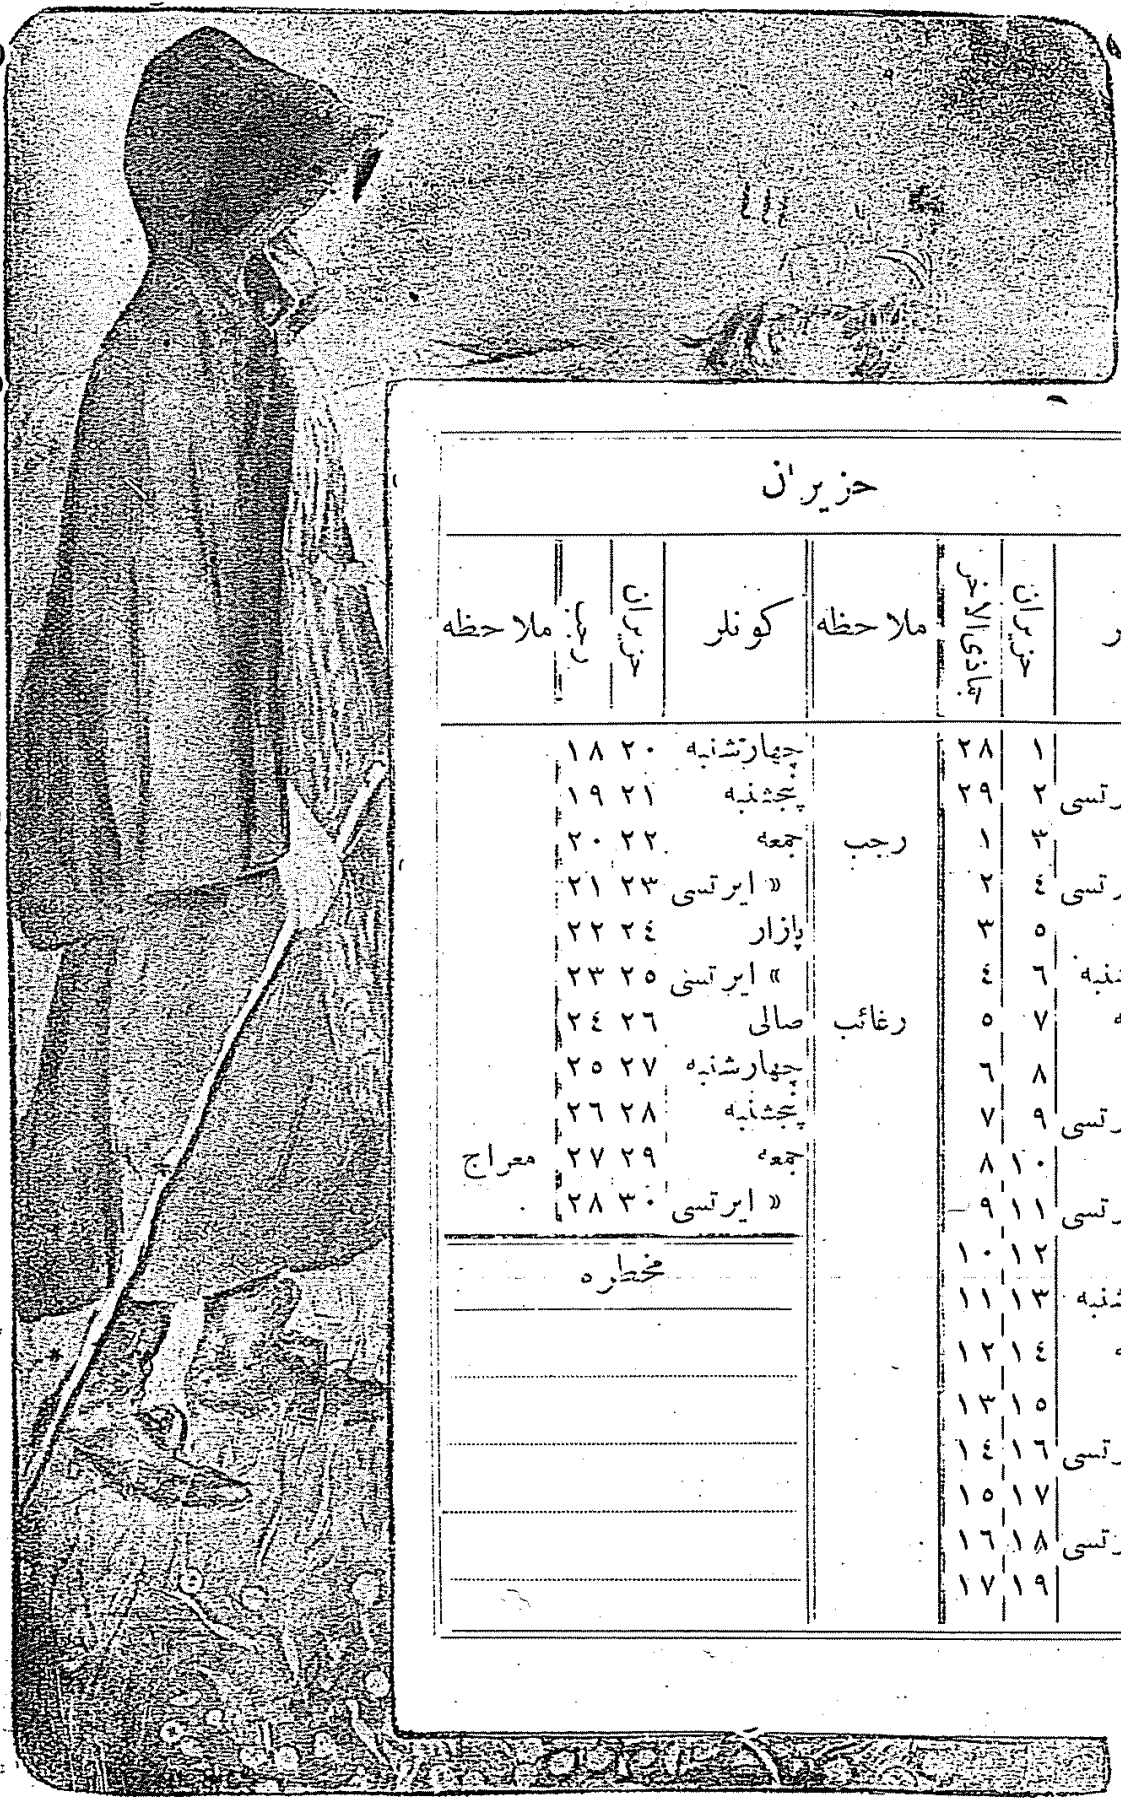 حزيران
ر حزيران جماذى الآخر ملاحظه كونلر حزيران رجب ملاحظه
١ ٢٨ چهارشنبه ٢٠ ١٨
رتسى ٢ ٢٩ پنجشنبه ٢١ ١٩
٣ ١ رجب جمعه ٢٢ ٢٠
رتسى ٤ ٢ « ايرتسى ٢٣ ٢١
٥ ٣ پازار ٢٤ ٢٢
شنبه ٦ ٤ « ايرتسى ٢٥ ٢٣
ه ٧ ٥ رغائب صالى ٢٦ ٢٤
٨ ٦ چهارشنبه ٢٧ ٢٥
رتسى ٩ ٧ پنجشنبه ٢٨ ٢٦
١٠ ٨ جمعه ٢٩ ٢٧ معراج
رتسى ١١ ٩ « ايرتسى ٣٠ ٢٨
١٢ ١٠ مخطره
شنبه ١٣ ١١
ه ١٤ ١٢
١٥ ١٣
رتسى ١٦ ١٤
١٧ ١٥
رتسى ١٨ ١٦
١٩ ١٧